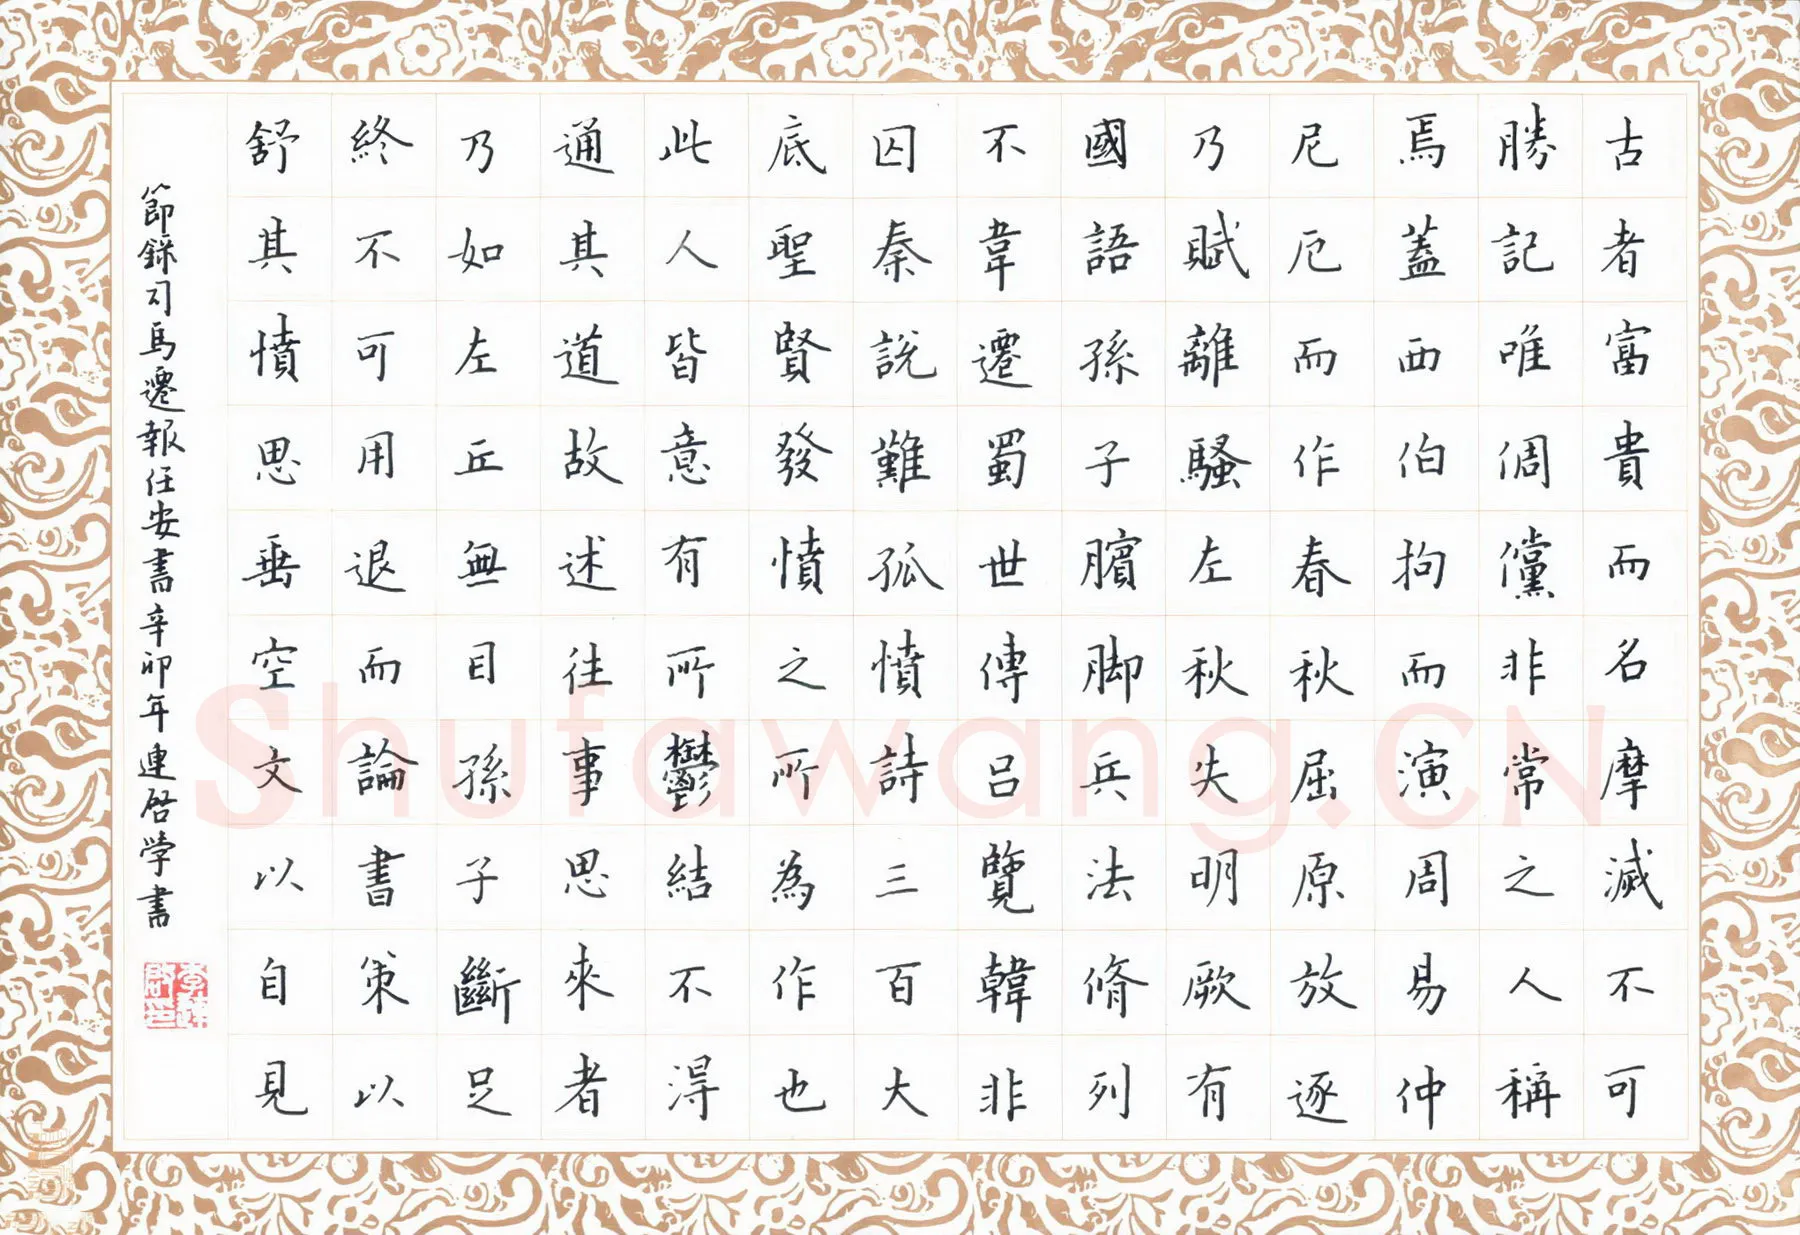 古者富貴而名摩滅不可
勝記唯倜儻非常之人稱
焉蓋西伯拘而演周易仲
尼厄而作春秋屈原放逐
乃賦離騷左秋失明厥有
國語孫子臏脚兵法脩列
不韋遷蜀世傳呂覽韓非
囚秦說難孤憤詩三百大
底聖賢發憤之所為作也
此人皆意有所鬱結不得
通其道故述往事思來者
乃如左丘無目孫子斷足
終不可用退而論書策以
舒其憤思垂空文以自見
節錄司馬遷報任安書辛卯年連啓学書
Shufawang.CN